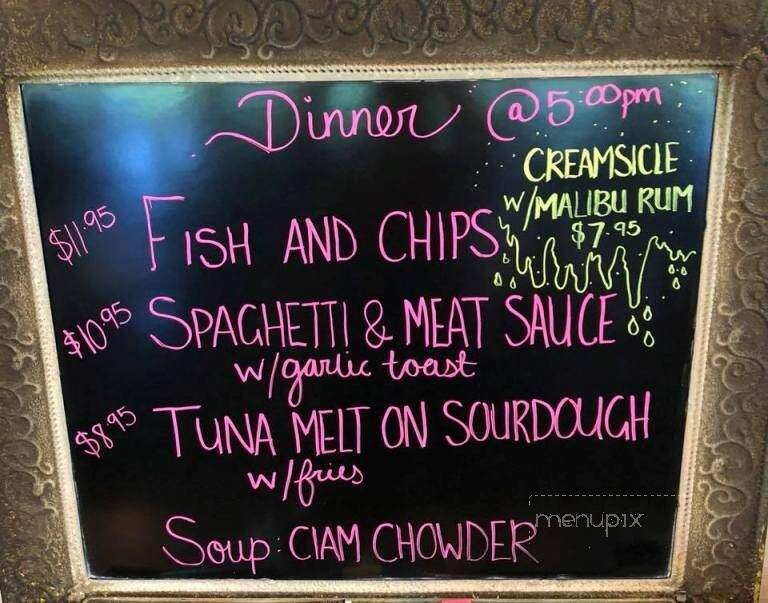 Dinner @ 5:00pm
CREAMSICLE
W/MALIBU RUM
$7.95
$11.95 FISH AND CHIPS
$10.95 SPAGHETTI & MEAT SAUCE
w/garlic toast
$8.95 TUNA MELT ON SOURDOUGH
w/fries
Soup: ClAM CHOWDER
menupix